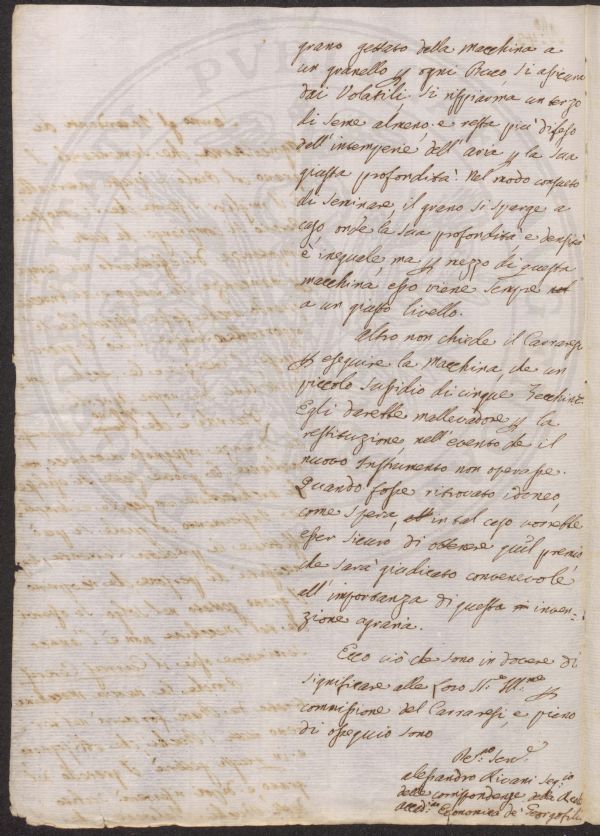 grano gettato dalla macchina a
un granello p ogni Buco, si assicura
dai Volatili. Si risparmia un terzo
di seme almeno, e resta più difeso
dall'intemperie dell'aria p la sua
giusta profondità. Nel modo consueto
di seminare, il grano si sparge a
caso onde la sua profondità e densità
è inequale ma p mezzo di questa
macchina, esso viene sempre
a un giusto livello.
Altro non chiede il Carraresi
p eseguire la Macchina, che un
piccolo Sussidio di cinque Zecchini.
Egli darebbe mallevadore p la
restituzione nell'evento che il
nuovo Instrumento non operasse.
Quando fosse ritrovato idoneo,
come spera, in tal caso vorrebbe
esser sicuro di ottenere quel premio
che sarà giudicato convenevole
all'importanza di questa inven=
zione agraria.
Ecco ciò che sono in dovere di
significare alle Loro Sig.e Ill.me p
commissione del Carraresi, e pieno
di ossequio sono
Alessandro Rivani Seg.io
delle corrispondenze della Reale
Accad.a Economica de' Georgofili